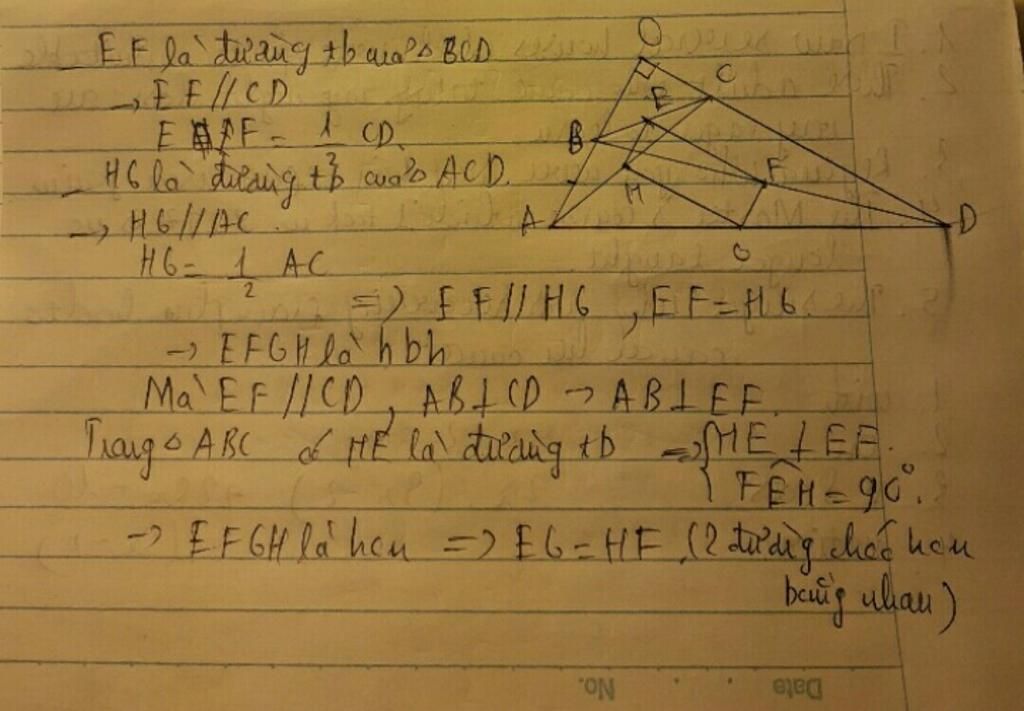 - EF là đường tb của △ BCD
→ EF // CD
E F = 1/2 CD.
- HG là đường tb của △ ACD.
→ HG // AC
HG = 1/2 AC
=> EF // HG , EF = HG.
→ EFGH là hbh
Mà EF // CD , AB ⊥ CD → AB ⊥ EF.
Trong △ ABC có HE là đường tb => { HE ⊥ EF.
FÊH = 90°.
→ EFGH là hcn => EG = HF (2 đường chéo hcn
bằng nhau)
O
C
E
B
F
H
A
D
G
Date
No.